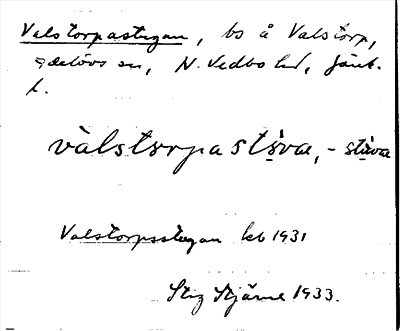 Valstorpastugan, bs å Valstorp,
Adelövs sn, N. Vedbo hd, Jönk.
l.
vàlstorpastṡvɑ, - stɩvɑ
Valstorpsstugan kb 1931
Stig Stjärne 1933.